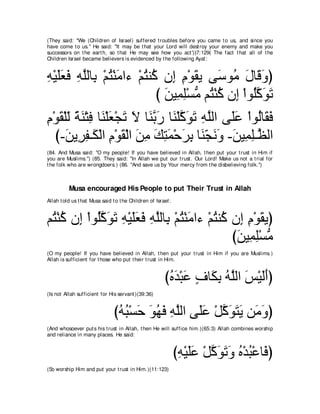 (They said: "We (Children of Israel) suffered troubles before you came to us, and since you
have come to us." He said: "It may be that your Lord will destroy your enemy and make you
successors on the earth, so that He may see how you act'')(7:129) The fact that all of the
Children Israel became believers is evidenced by the following Ayat:
(وَقَالَ مُوسَى يقَوْمِ إِن كُنتُمْ ءامَنْتُمْ بِاللَّهِ فَعَلَيْهِ
تَوَكَّلُواْ إِن كُنْتُم مُّسْلِمِينَ )
فَقَالُواْ عَلَى اللَّهِ تَوَكَّلْنَا رَبَّنَا لاَ تَجْعَلْنَا فِتْنَةً لِّلْقَوْمِ
الظَّـلِمِينَ- وَنَجِّنَا بِرَحْمَتِكَ مِنَ الْقَوْمِ الْكَـفِرِينَ-)
(84. And Musa said: "O my people! If you have believed in Allah, then put your trust in Him if
you are Muslims.'') (85. They said: "In Allah we put our trust. Our Lord! Make us not a trial for
the folk who are wrongdoers.) (86. "And save us by Your mercy from the disbelieving folk.'')
Musa encouraged His People to put Their Trust in Allah
Allah told us that Musa said to the Children of Israel:
(يقَوْمِ إِن كُنتُمْ ءامَنْتُمْ بِاللَّهِ فَعَلَيْهِ تَوَكَّلُواْ إِن كُنْتُم
مُّسْلِمِينَ)
(O my people! If you have believed in Allah, then put your trust in Him if you are Muslims.)
Allah is sufficient for those who put their trust in Him.
(أَلَيْسَ اللَّهُ بِكَافٍ عَبْدَهُ)
(Is not Allah sufficient for His servant)(39:36)
(وَمَن يَتَوَكَّلْ عَلَى اللَّهِ فَهُوَ حَسْبُهُ)
(And whosoever puts his trust in Allah, then He will suffice him.)(65:3) Allah combines worship
and reliance in many places. He said:
(فَاعْبُدْهُ وَتَوَكَّلْ عَلَيْهِ)
(So worship Him and put your trust in Him.)(11:123)